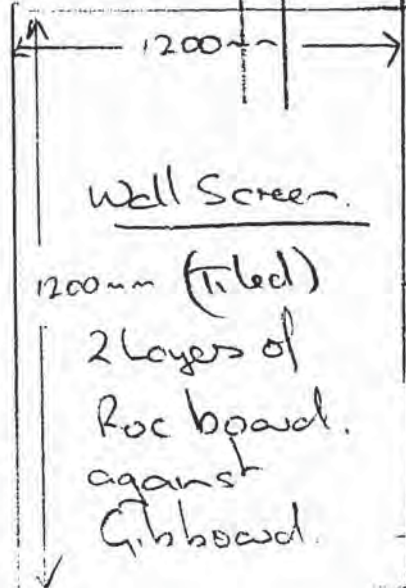 1200mm
Wall Screen.
1200mm (Tiled)
2 Layers of
Roc board.
against
Gibboard.